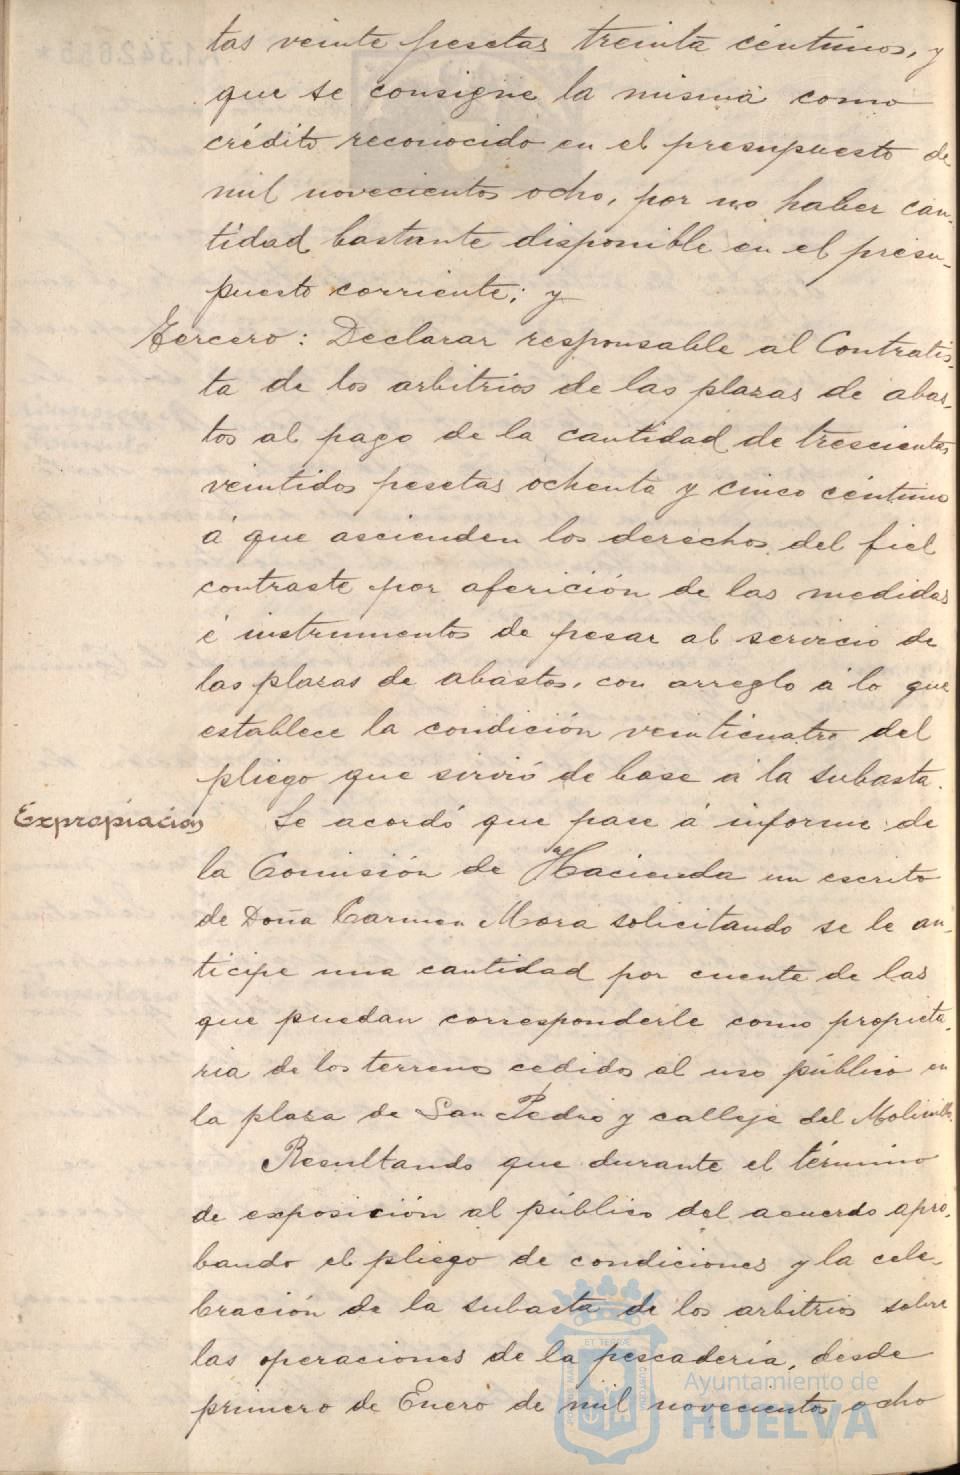 tas veinte pesetas treinta céntimos, y
que se consigne la misma como
crédito reconocido en el presupuesto de
mil novecientos ocho, por no haber can-
tidad bastante disponible en el presu-
puesto corriente; y
Tercero: Declarar responsable al Contratis-
ta de los arbitrios de las plazas de abas-
tos al pago de la cantidad de trescientas
veintidos pesetas ochenta y cinco céntimo
á que ascienden los derechos del fiel
contraste por aferición de las medidas
é instrumentos de pesar al servicio de
las plazas de abastos, con arreglo á lo que
establece la condición veinticuatro del
pliego que sirvió de base á la subasta.
Expropiación
Se acordó que pase á informe de
la Comisión de Hacienda un escrito
de Doña Carmen Mora solicitando se le an-
ticipe una cantidad por cuenta de las
que puedan corresponderle como propieta-
ria de los terrenos cedidos al uso público en
la plaza de San Pedro y calleja del Molinillo.
Resultando que durante el término
de exposición al público del acuerdo apro-
bando el pliego de condiciones y la cele-
bración de la subasta de los arbitrios sobre
las operaciones de la pescadería, desde
primero de Enero de mil novecientos ocho
Ayuntamiento de
HUELVA